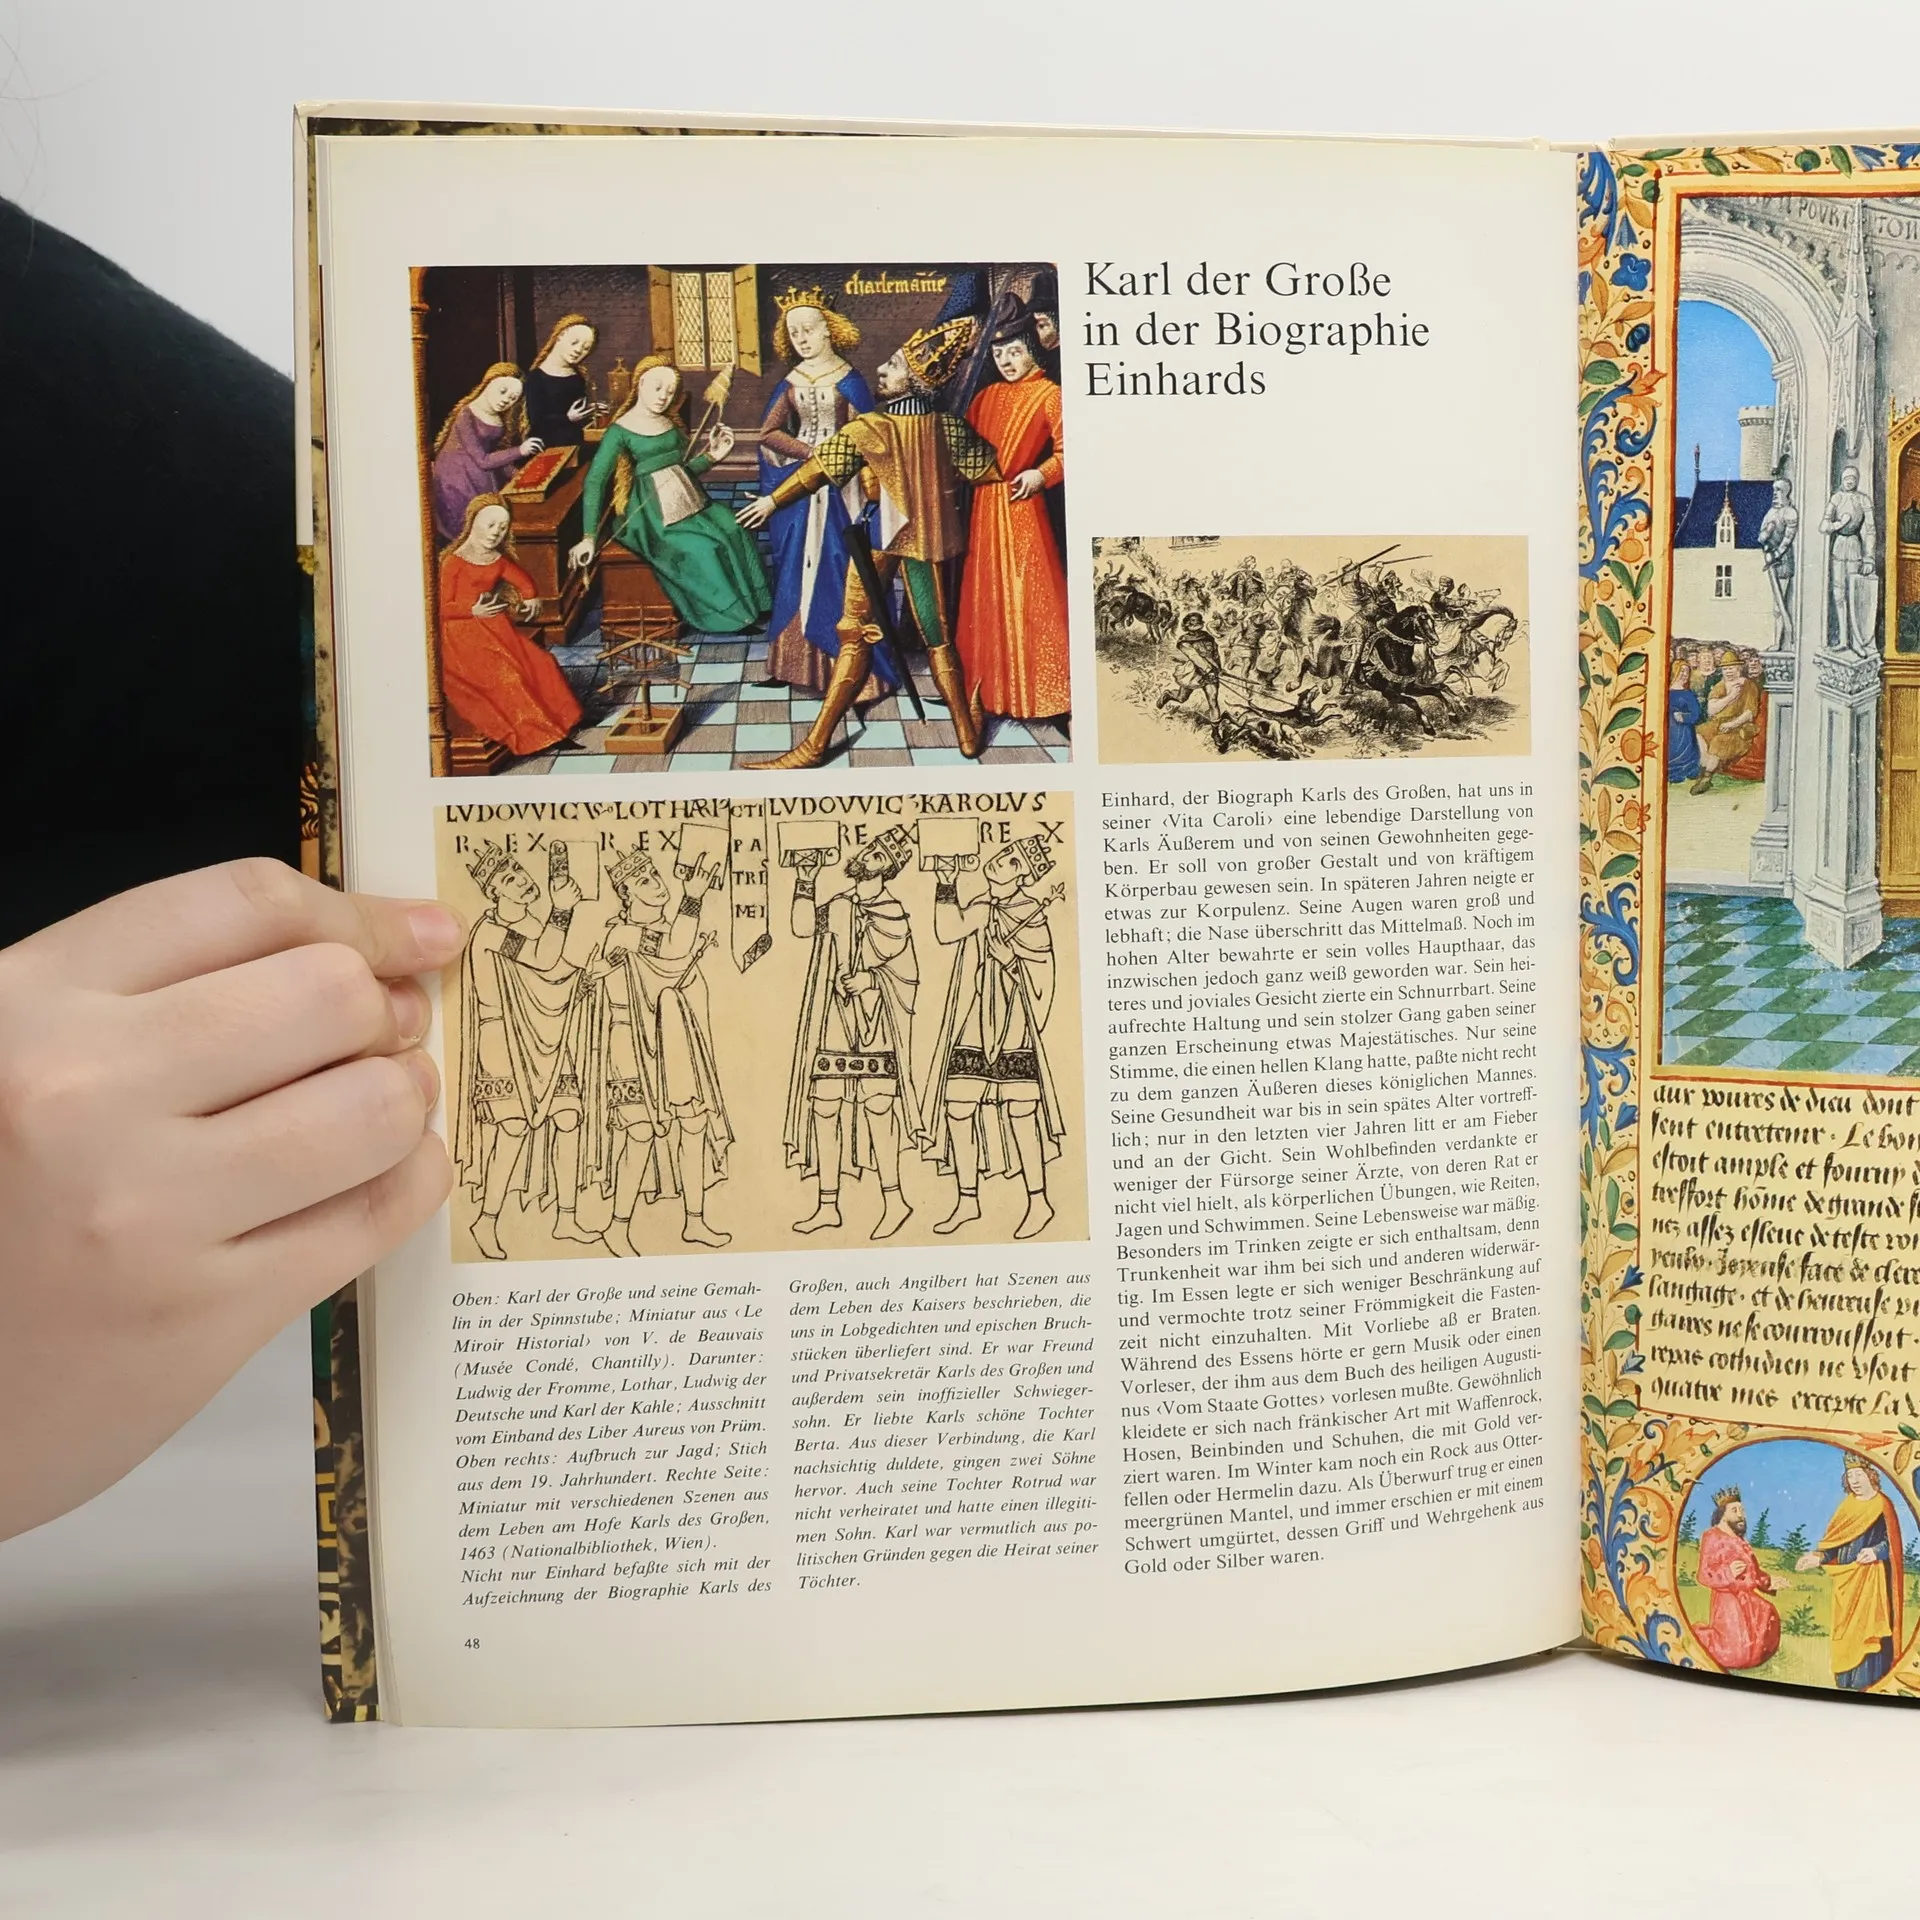 Karl der Große
in der Biographie
Einhards
charlemaine
LVDOVVICVS LOTHARI
R EX R EX
CTI
PA
TRI
MEI
LVDOVVIC KAROLVS
RE X RE X
Oben: Karl der Große und seine Gemah-
lin in der Spinnstube; Miniatur aus ‹Le
Miroir Historial› von V. de Beauvais
(Musée Condé, Chantilly). Darunter:
Ludwig der Fromme, Lothar, Ludwig der
Deutsche und Karl der Kahle; Ausschnitt
vom Einband des Liber Aureus von Prüm.
Oben rechts: Aufbruch zur Jagd; Stich
aus dem 19. Jahrhundert. Rechte Seite:
Miniatur mit verschiedenen Szenen aus
dem Leben am Hofe Karls des Großen,
1463 (Nationalbibliothek, Wien).
Nicht nur Einhard befaßte sich mit der
Aufzeichnung der Biographie Karls des
Großen, auch Angilbert hat Szenen aus
dem Leben des Kaisers beschrieben, die
uns in Lobgedichten und epischen Bruch-
stücken überliefert sind. Er war Freund
und Privatsekretär Karls des Großen und
außerdem sein inoffizieller Schwieger-
sohn. Er liebte Karls schöne Tochter
Berta. Aus dieser Verbindung, die Karl
nachsichtig duldete, gingen zwei Söhne
hervor. Auch seine Tochter Rotrud war
nicht verheiratet und hatte einen illegiti-
men Sohn. Karl war vermutlich aus po-
litischen Gründen gegen die Heirat seiner
Töchter.
Einhard, der Biograph Karls des Großen, hat uns in
seiner ‹Vita Caroli› eine lebendige Darstellung von
Karls Äußerem und von seinen Gewohnheiten gege-
ben. Er soll von großer Gestalt und von kräftigem
Körperbau gewesen sein. In späteren Jahren neigte er
etwas zur Korpulenz. Seine Augen waren groß und
lebhaft; die Nase überschritt das Mittelmaß. Noch im
hohen Alter bewahrte er sein volles Haupthaar, das
inzwischen jedoch ganz weiß geworden war. Sein hei-
teres und joviales Gesicht zierte ein Schnurrbart. Seine
aufrechte Haltung und sein stolzer Gang gaben seiner
ganzen Erscheinung etwas Majestätisches. Nur seine
Stimme, die einen hellen Klang hatte, paßte nicht recht
zu dem ganzen Äußeren dieses königlichen Mannes.
Seine Gesundheit war bis in sein spätes Alter vortreff-
lich; nur in den letzten vier Jahren litt er am Fieber
und an der Gicht. Sein Wohlbefinden verdankte er
weniger der Fürsorge seiner Ärzte, von deren Rat er
nicht viel hielt, als körperlichen Übungen, wie Reiten,
Jagen und Schwimmen. Seine Lebensweise war mäßig.
Besonders im Trinken zeigte er sich enthaltsam, denn
Trunkenheit war ihm bei sich und anderen widerwär-
tig. Im Essen legte er sich weniger Beschränkung auf
und vermochte trotz seiner Frömmigkeit die Fasten-
zeit nicht einzuhalten. Mit Vorliebe aß er Braten.
Während des Essens hörte er gern Musik oder einen
Vorleser, der ihm aus dem Buch des heiligen Augusti-
nus ‹Vom Staate Gottes› vorlesen mußte. Gewöhnlich
kleidete er sich nach fränkischer Art mit Waffenrock,
Hosen, Beinbinden und Schuhen, die mit Gold ver-
ziert waren. Im Winter kam noch ein Rock aus Otter-
fellen oder Hermelin dazu. Als Überwurf trug er einen
meergrünen Mantel, und immer erschien er mit einem
Schwert umgürtet, dessen Griff und Wehrgehenk aus
Gold oder Silber waren.
48
POVR
aux povres de dieu dont
sent entretenir. Le bon
estoit ample et fourny
homme de grande
nez assez esleue de teste
face de clere
langage. et de
ne se courroussoit.
repas cothidien ne vsoit
quatre mes excepte La